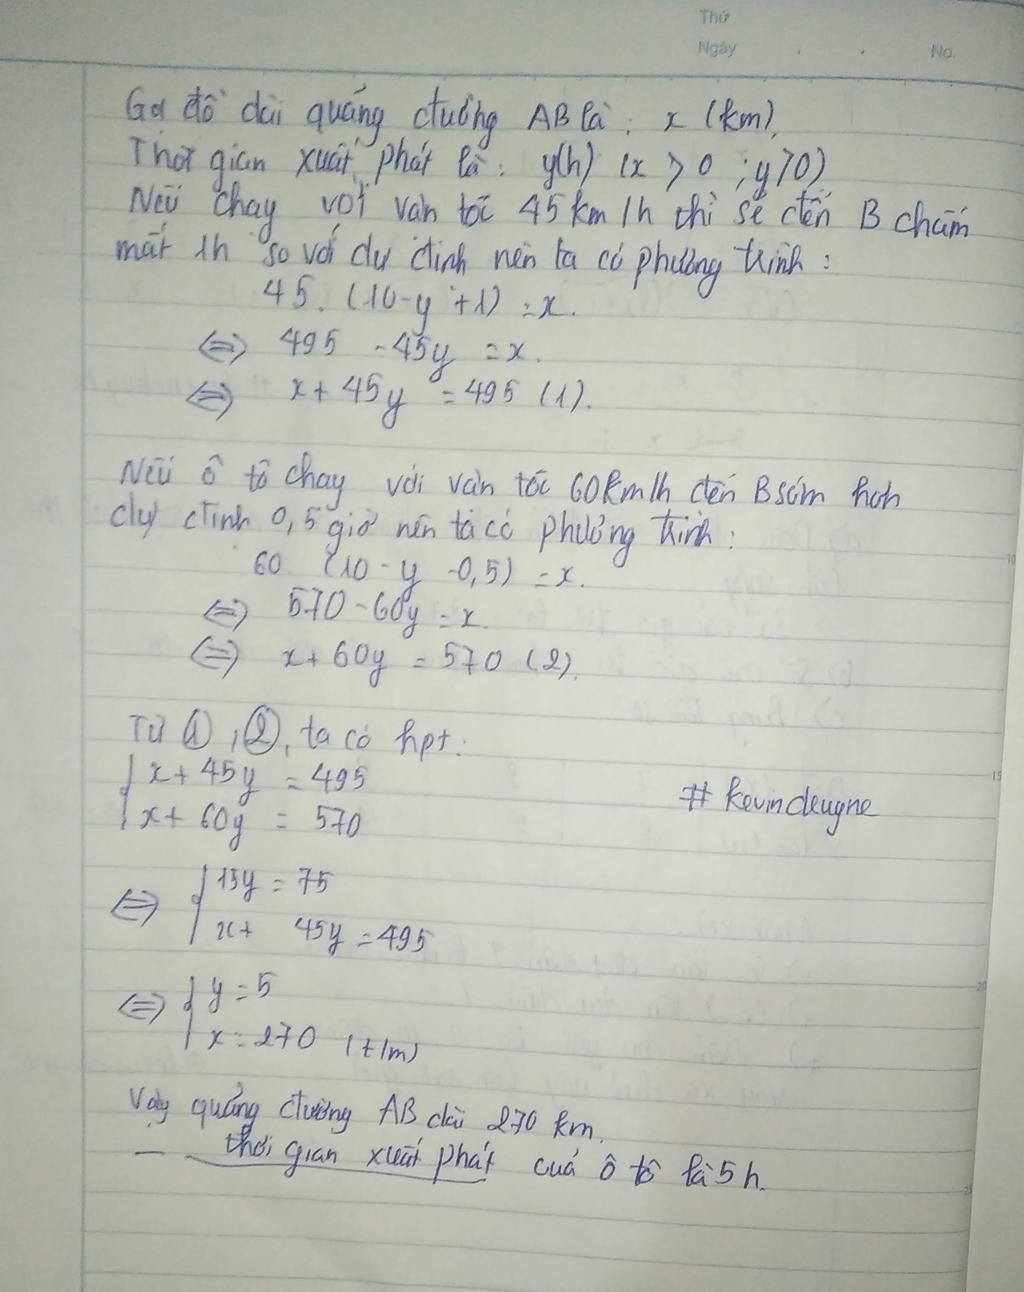 Thứ
Ngày . . No.
Gọi độ dài quãng đường AB là : x (km).
Thời gian xuất phát là : y(h) (x > 0 ; y > 0)
Nếu chạy với vận tốc 45km/h thì sẽ đến B chậm
mất 1h so với dự định nên ta có phương trình :
45. (10-y +1) = x.
⇔ 495 - 45y = x.
⇔ x + 45y = 495 (1).
Nếu ô tô chạy với vận tốc 60km/h đến B sớm hơn
dự định 0,5 giờ nên ta có phương trình :
60 (10 - y -0,5) = x.
⇔ 570 - 60y = x.
⇔ x + 60y = 570 (2).
Từ ①, ②, ta có hpt:
{ x + 45y = 495
x + 60y = 570
# kevindeugne
⇔ { 15y = 75
x + 45y = 495
⇔ { y = 5
x = 270 (t/m)
Vậy quãng đường AB dài 270 km.
— thời gian xuất phát của ô tô là 5 h.